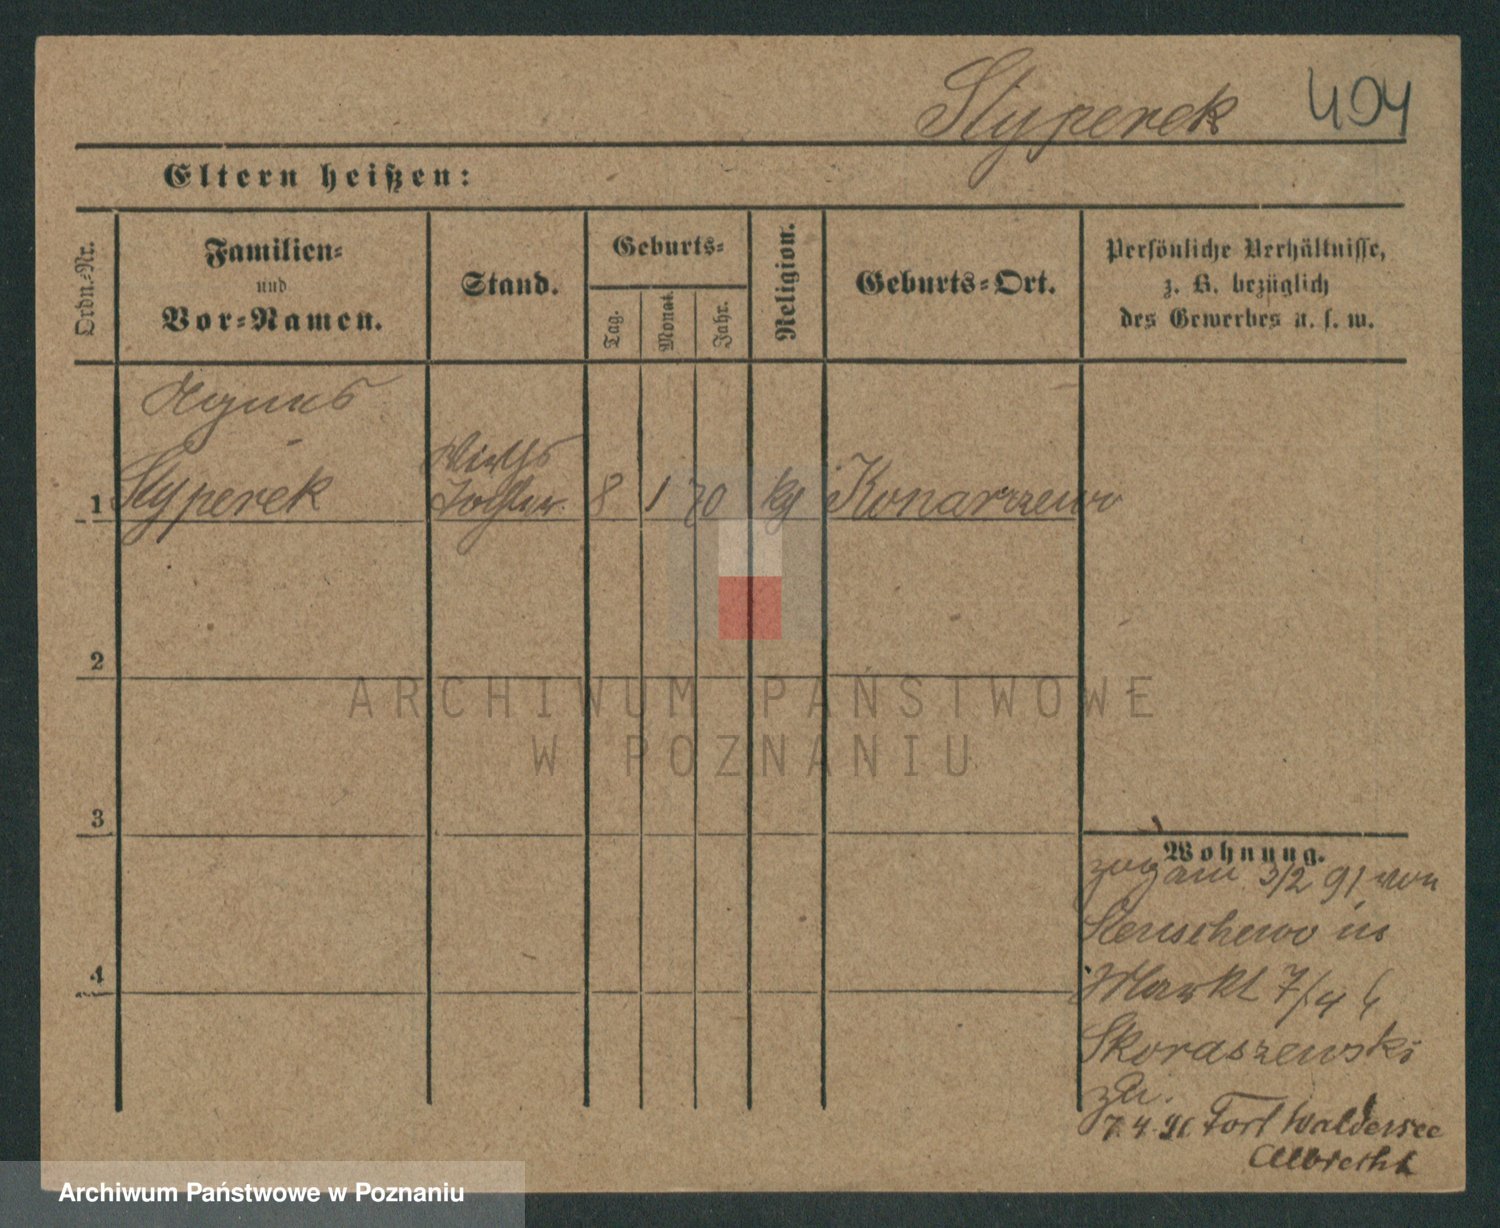 Styperek 404
Eltern heißen:
Ordn.-Nr.
Familien-
und
Vor-Namen.
Stand.
Geburts-
Tag.
Monat.
Jahr.
Religion.
Geburts-Ort.
Persönliche Verhältnisse,
z. B. bezüglich
des Gewerbes u. s. w.
Agnes
Wirths
1 Styperek 8 1 70 kg Konarzewo
2
ARCHIWUM PAŃSTWOWE
W POZNANIU
3
Wohnung.
zog am 3/2 91 von
Stenschewo in
Markt 7/4
Skoraszewski
zu.
7.4.91 Fort Waldersee
Albrecht
4
Archiwum Państwowe w Poznaniu